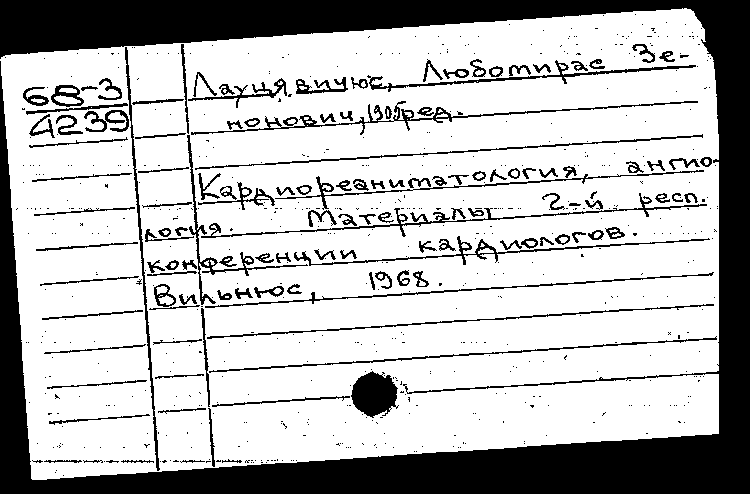 68-3
4239
Лауцявичюс, Любомирас Зе-
нонович, 1905 ред.
Кардиореаниматология, ангио-
логия. Материалы 2-й респ.
конференции кардиологов.
Вильнюс, 1968.